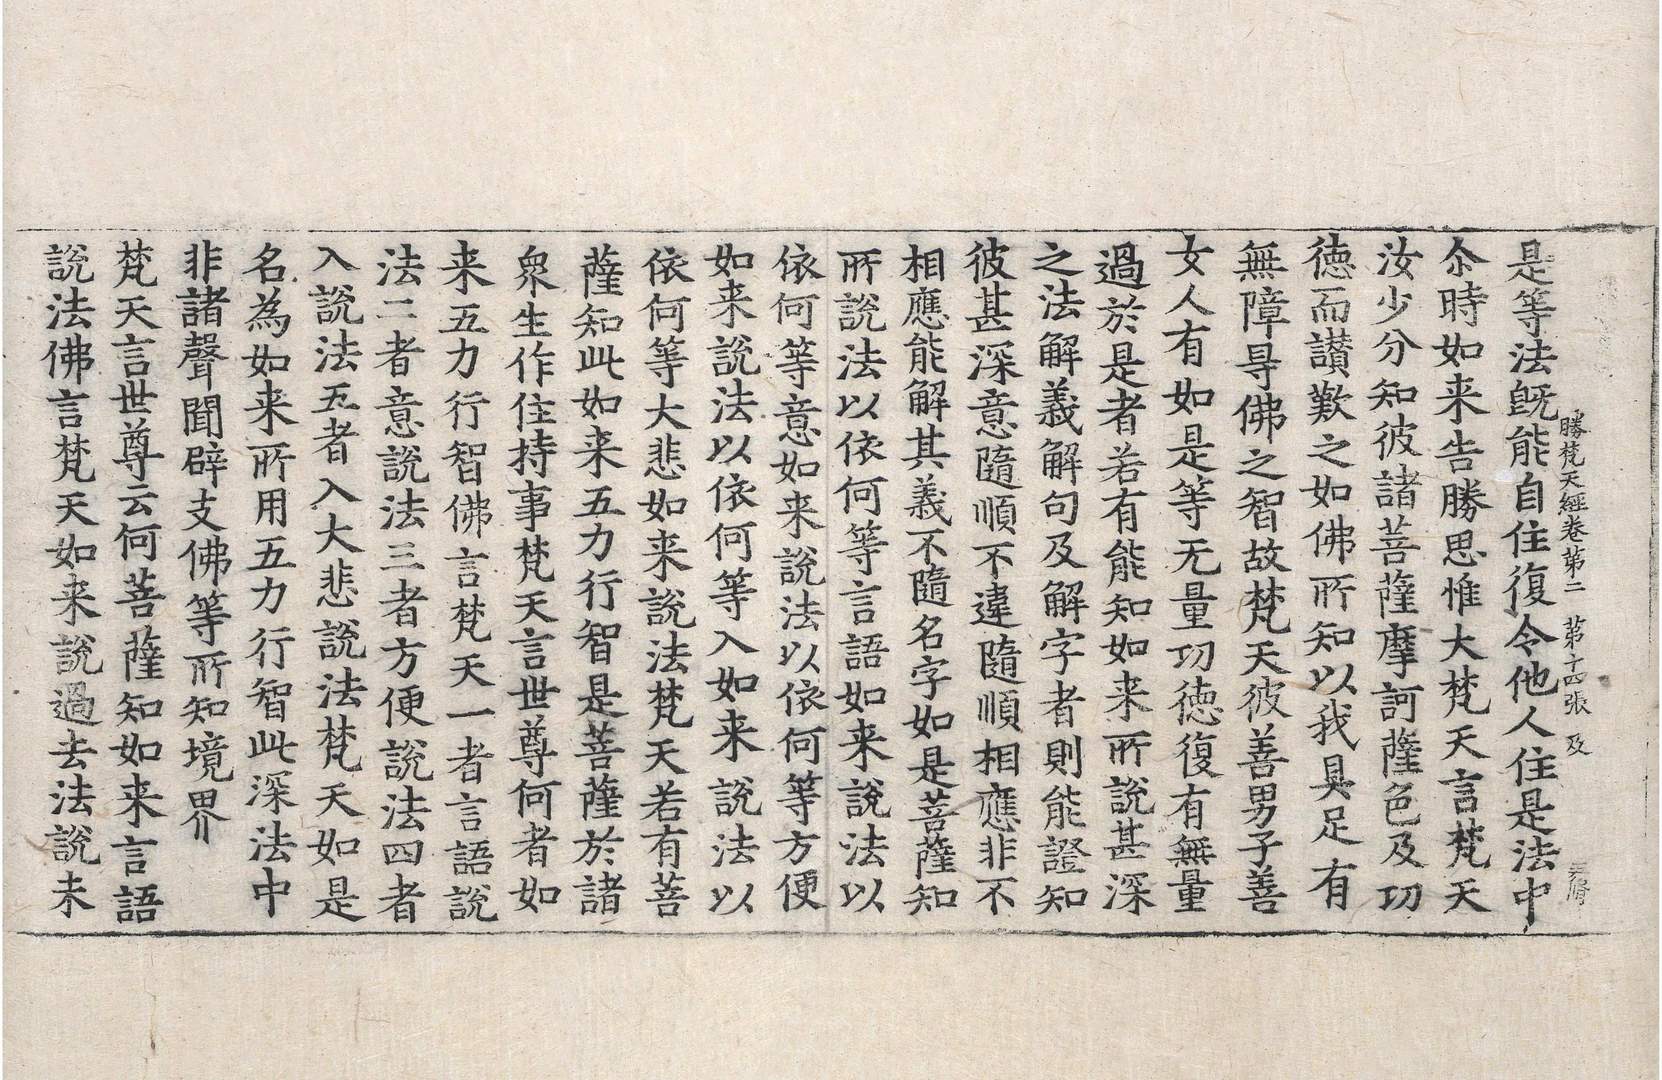 勝梵天經卷第二　第十四張　及
是等法旣能自住復令他人住是法中
尒時如来告勝思惟大梵天言梵天
汝少分知彼諸菩薩摩訶薩色及功
徳而讃歎之如佛所知以我具足有
無障㝵佛之智故梵天彼善男子善
女人有如是等无量功徳復有無量
過於是者若有能知如来所說甚深
之法解義解句及解字者則能證知
彼甚深意隨順不違隨順相應非不
相應能解其義不隨名字如是菩薩知
所說法以依何等言語如来說法以
依何等意如来說法以依何等方便
如来說法以依何等入如来說法以
依何等大悲如来說法梵天若有菩
薩知此如来五力行智是菩薩於諸
衆生作住持事梵天言世尊何者如
来五力行智佛言梵天一者言語說
法二者意說法三者方便說法四者
入說法五者入大悲說法梵天如是
名為如来所用五力行智此深法中
非諸聲聞辟支佛等所知境界
梵天言世尊云何菩薩知如来言語
說法佛言梵天如来說過去法說未